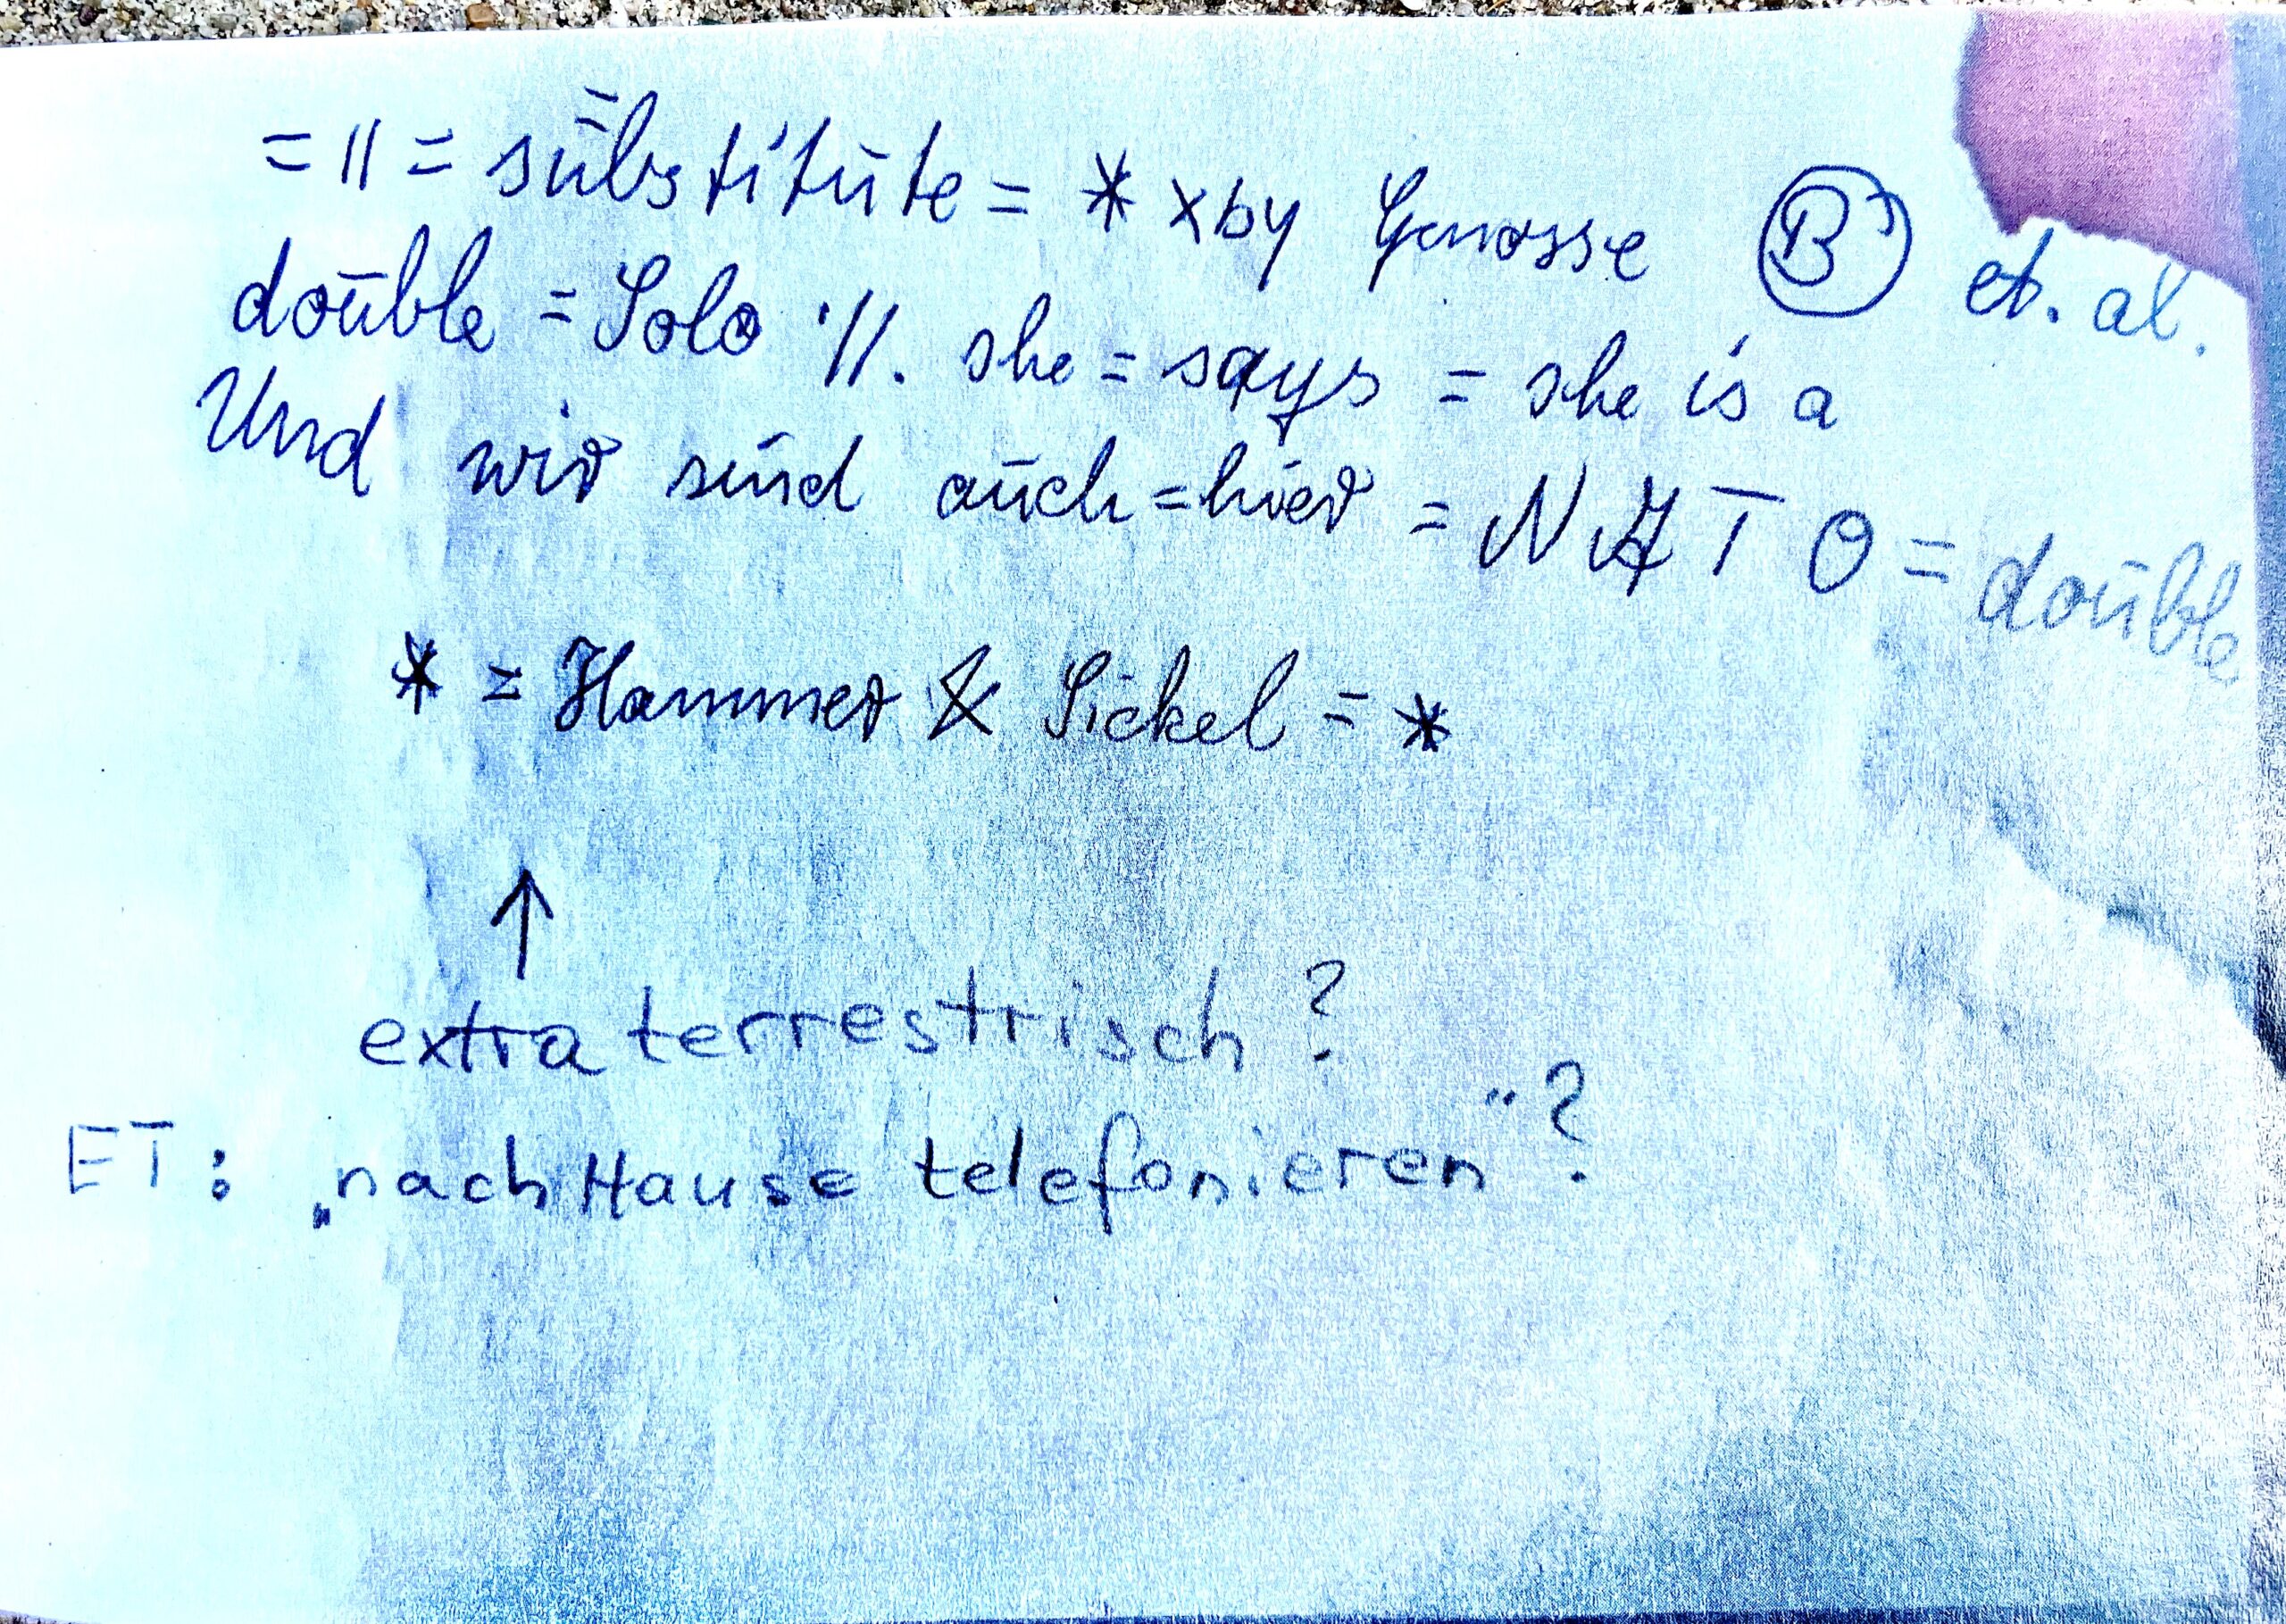 = 11 = substitute = * x by Genosse B et. al.
double = Solo '//. she = says = she is a
Und wir sind auch = hier = NATO = double
* = Hammer & Sickel = *
↑
extraterrestrisch ?
ET: „nach Hause telefonieren"?